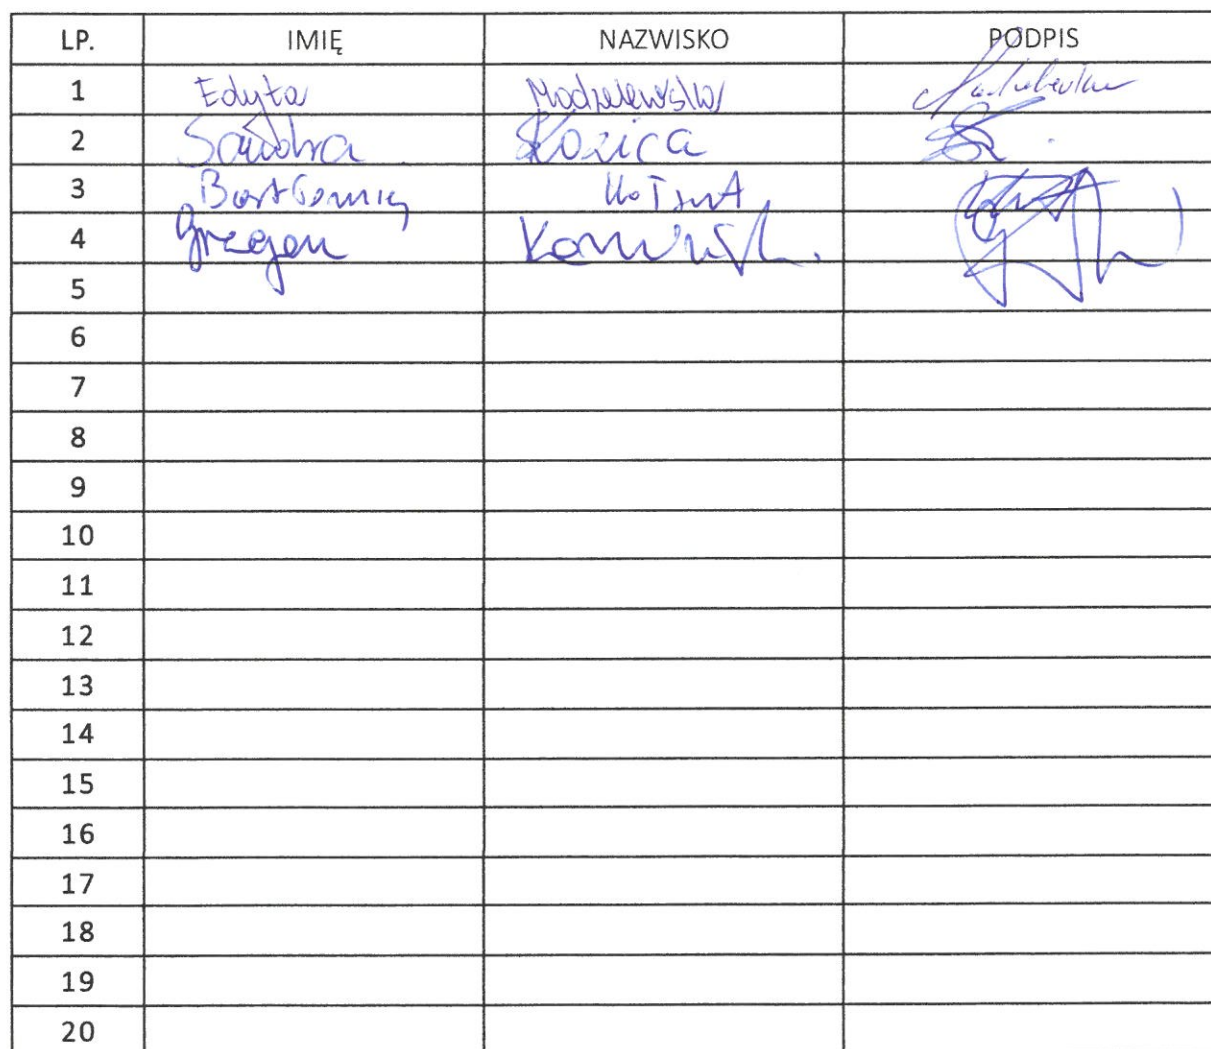 LP. IMIĘ NAZWISKO PODPIS
1 Edyta Modzelewska
2 Sandra Kozica
3 Bartłomiej
4 Grzegorz
5
6
7
8
9
10
11
12
13
14
15
16
17
18
19
20